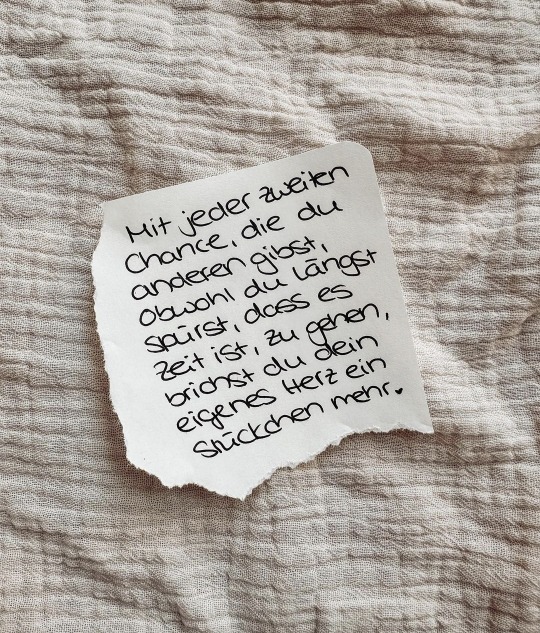 Mit jeder zweiten
Chance, die du
anderen gibst,
obwohl du längst
spürst, dass es
zeit ist, zu gehen,
brichst du dein
eigenes Herz ein
Stückchen mehr.♥